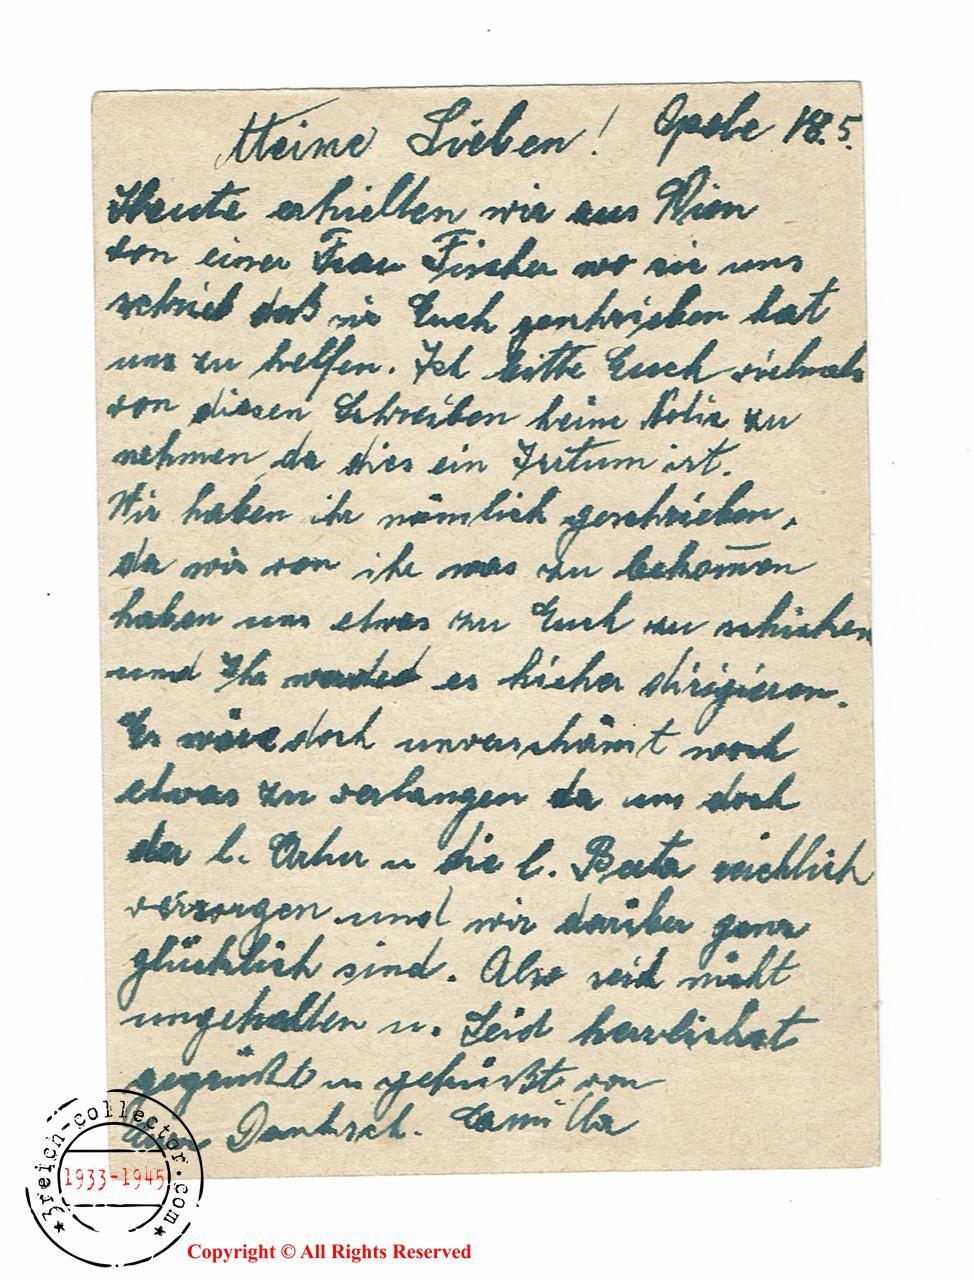 Meine Lieben! Opole 18.5.
Heute erhielten wir aus Wien
von einer Frau Fischer wo sie uns
schrieb daß sie Euch geschrieben hat
uns zu helfen. Ich bitte Euch vielmals
von diesen Schreiben keine Notiz zu
nehmen, da dies ein Irrtum ist.
Wir haben ihr nämlich geschrieben,
da wir von ihr was zu bekom̅en
haben uns etwas zu Euch zu schicken
und Ihr werdet es hieher dirigieren.
Es wäre doch unverschämt noch
etwas zu verlangen da uns doch
der l. u die l. Beata reichlich
versorgen und wir darüber ganz
glücklich sind. Also seid nicht
ungehalten u. Seid herzlichst
gegrüßt u geküßt von
Camilla
3reich-collector.com
1933-1945
Copyright © All Rights Reserved